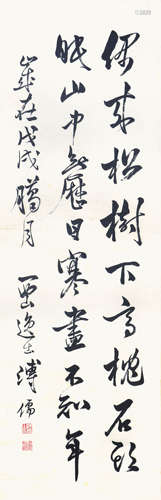 偶來松樹下高枕石頭
眠山中無曆日寒盡不知年
歲在戊戌臘月 西山逸士溥儒